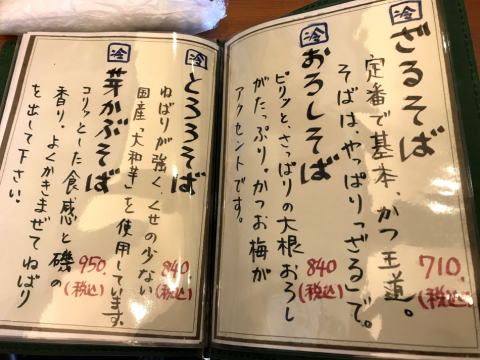 冷 ざるそば
定番で基本、かつ王道。
そばは、やっぱり「ざる」で。
710.
(税込)
冷 おろしそば
ピリッと、さっぱりの大根おろし
がたっぷり。かつお梅が
アクセントです。
840
(税込)
冷 とろろそば
ねばりが強く、くせの少ない
国産「大和芋」を使用しています。
840
(税込)
冷 芽かぶそば
コリッとした食感と磯の
香り。よくかきまぜてねばり
を出して下さい。
950.
(税込)